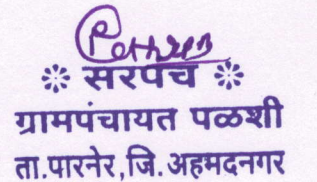 ❋ सरपंच ❋
ग्रामपंचायत पळशी
ता.पारनेर,जि.अहमदनगर